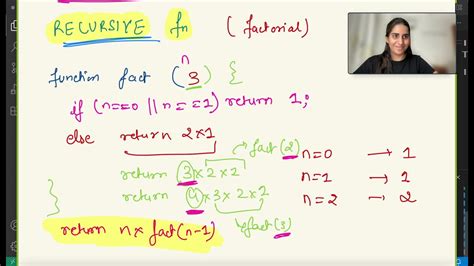 RECURSIVE fn (factorial)
n
function fact (3) {
if (n==0 || n==1) return 1;
else return 2×1
fact(2)
return 3×2×1
return 4×3×2×1
}
fact(3)
return n×fact(n-1)
n=0 → 1
n=1 → 1
n=2 → 2